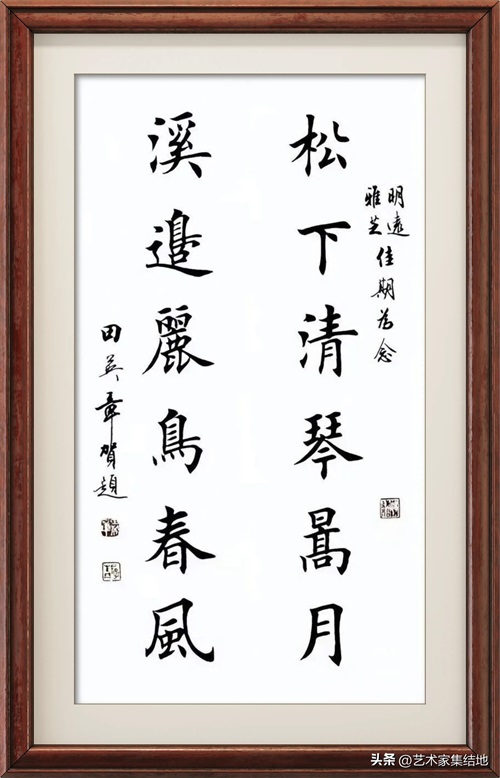 明遠
雅芝
佳期為念
松下清琴暠月
溪邊麗鳥春風
田英章賀題
头条 @艺术家集结地